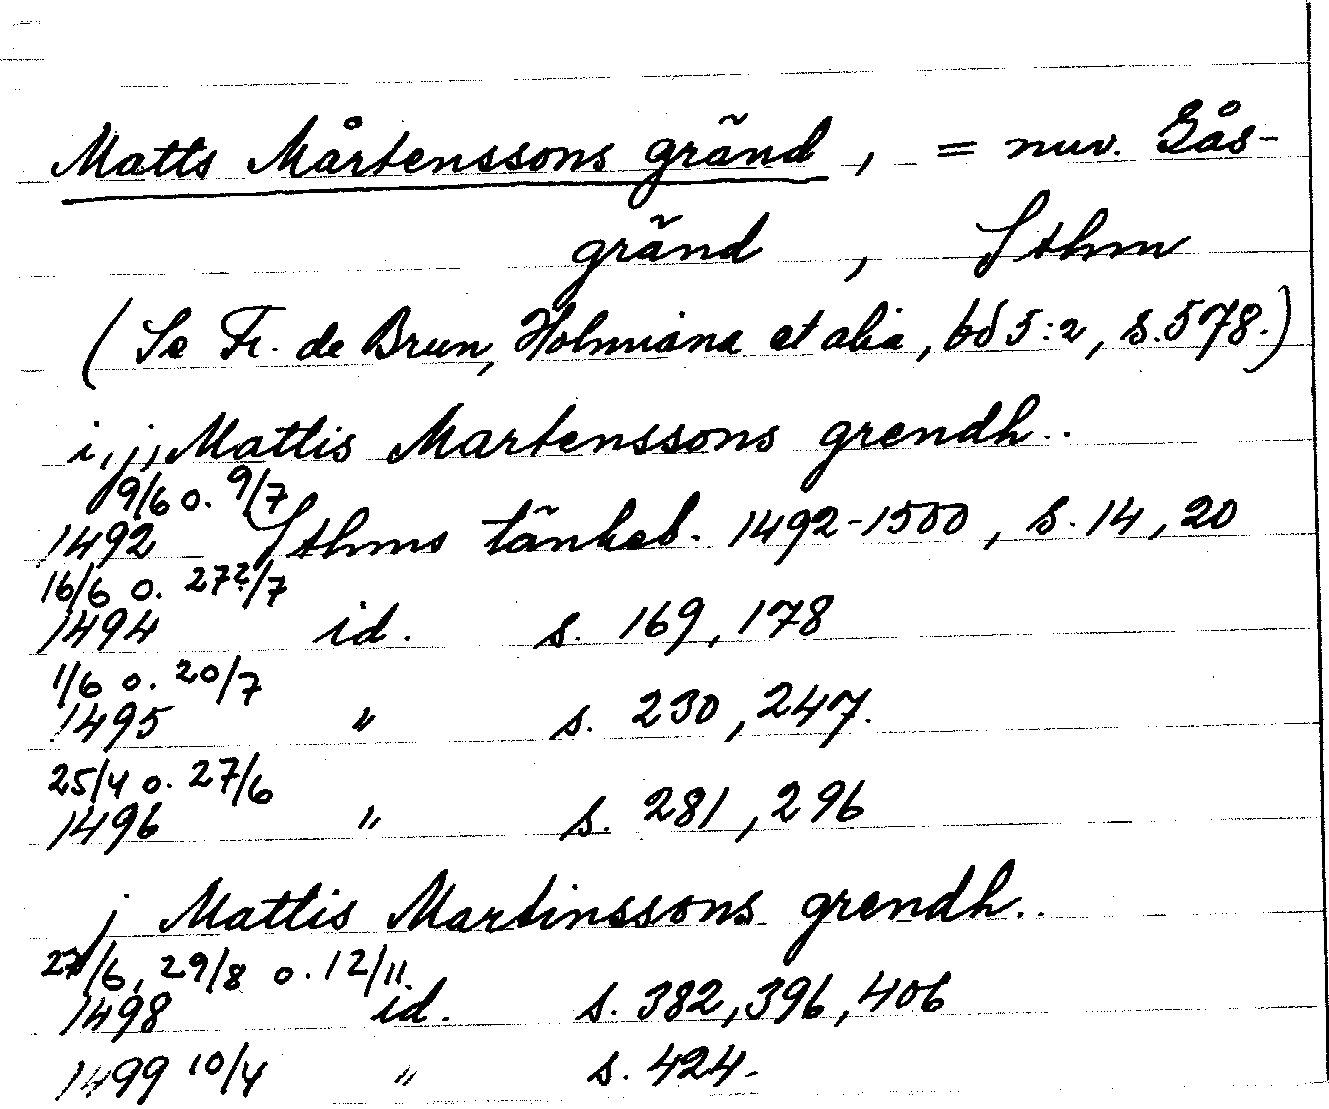 Matts Mårtenssons gränd, = nuv. Gås-
gränd, Sthm
(Se Fr. de Brun, Holmiana et alia, bd 5:2, s. 578.)
i, j, Mattis Martenssons grendh..
9/6 o. 9/7
1492 Sthms tänkeb. 1492-1500, s. 14, 20
16/6 o. 27?/7
1494 id. s. 169, 178
1/6 o. 20/7
1495 " s. 230, 247.
25/4 o. 27/6
1496 " s. 281, 296
j Mattis Martinssons grendh..
27/6, 29/8 o. 12/11.
1498 id. s. 382, 396, 406
1499 10/4 " s. 424.